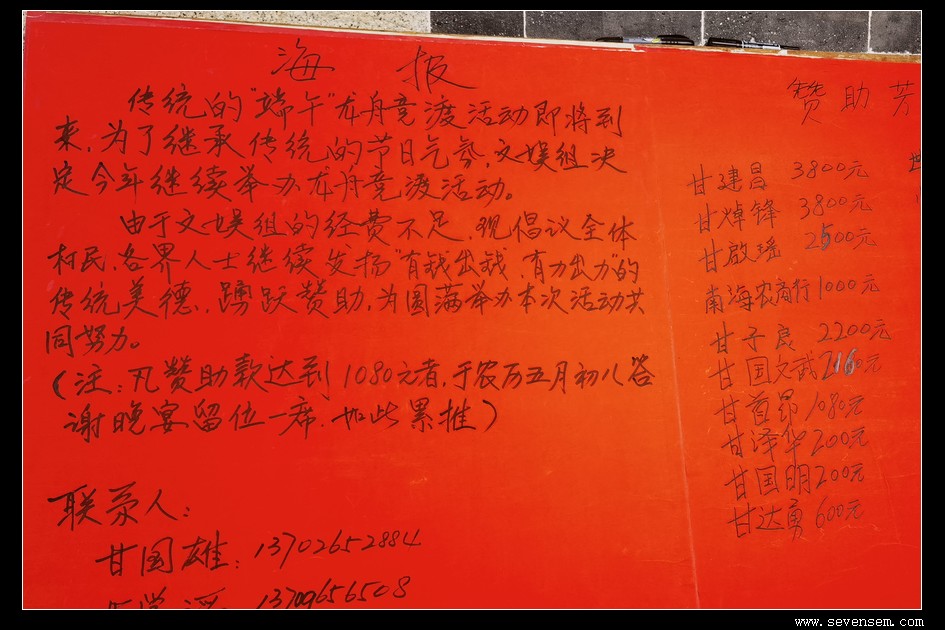 海报
传统的"端午"龙舟竞渡活动即将到
来,为了继承传统的节日气氛,文娱组决
定今年继续举办龙舟竞渡活动。
由于文娱组的经费不足,现倡议全体
村民,各界人士继续发扬"有钱出钱,有力出力"的
传统美德,踊跃赞助,为圆满举办本次活动共
同努力。
(注:凡赞助款达到1080元者,于农历五月初八答
谢晚宴留位一席,如此累推)
联系人:
甘国雄:13702652884
13709656508
赞助芳
甘建昌 3800元
甘焯锋 3800元
甘啟瑶 2500元
南海农商行1000元
甘子良 2200元
甘国文武2160元
甘首昂1080元
甘泽华200元
甘国明200元
甘达勇600元
www.sevensem.com